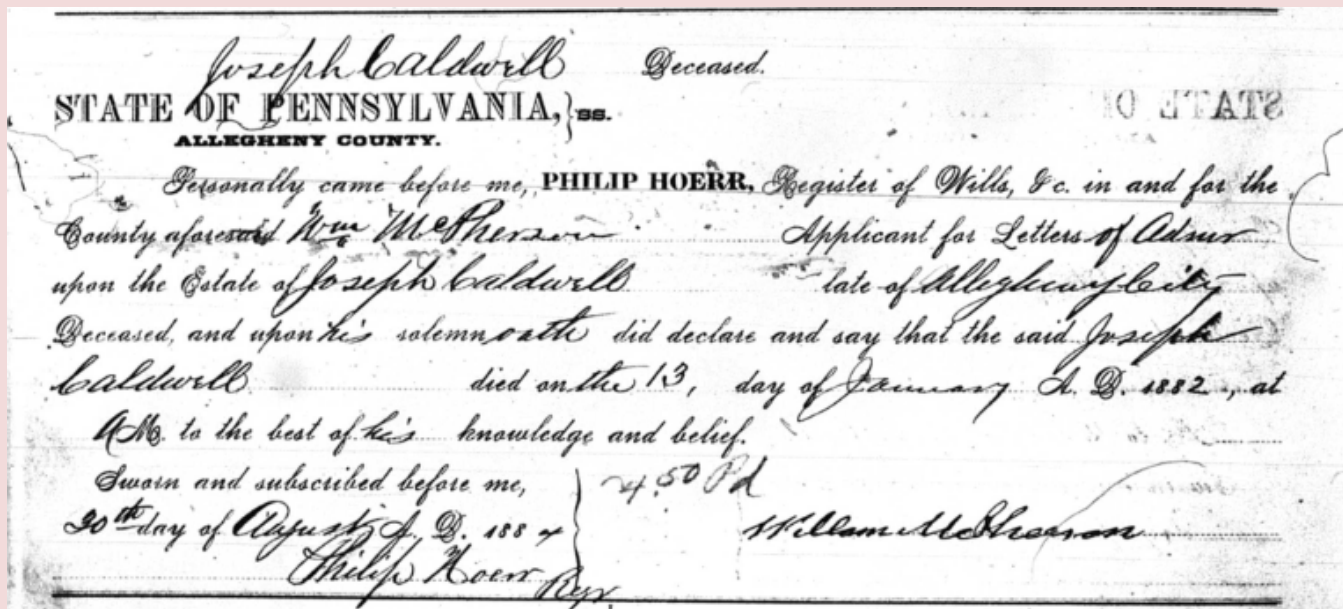 Joseph Caldwell Deceased.
STATE OF PENNSYLVANIA, } ss.
ALLEGHENY COUNTY.
Personally came before me, PHILIP HOERR, Register of Wills, &c. in and for the
County aforesaid Wm McPherson Applicant for Letters of Admr
upon the Estate of Joseph Caldwell late of Allegheny City
Deceased, and upon his solemn oath did declare and say that the said Joseph
Caldwell died on the 13, day of January A. D. 1882, at
A M. to the best of his knowledge and belief.
Sworn and subscribed before me,
20th day of August A. D. 1884
4.50 Pd
William McPherson
Philip Hoerr
Regr